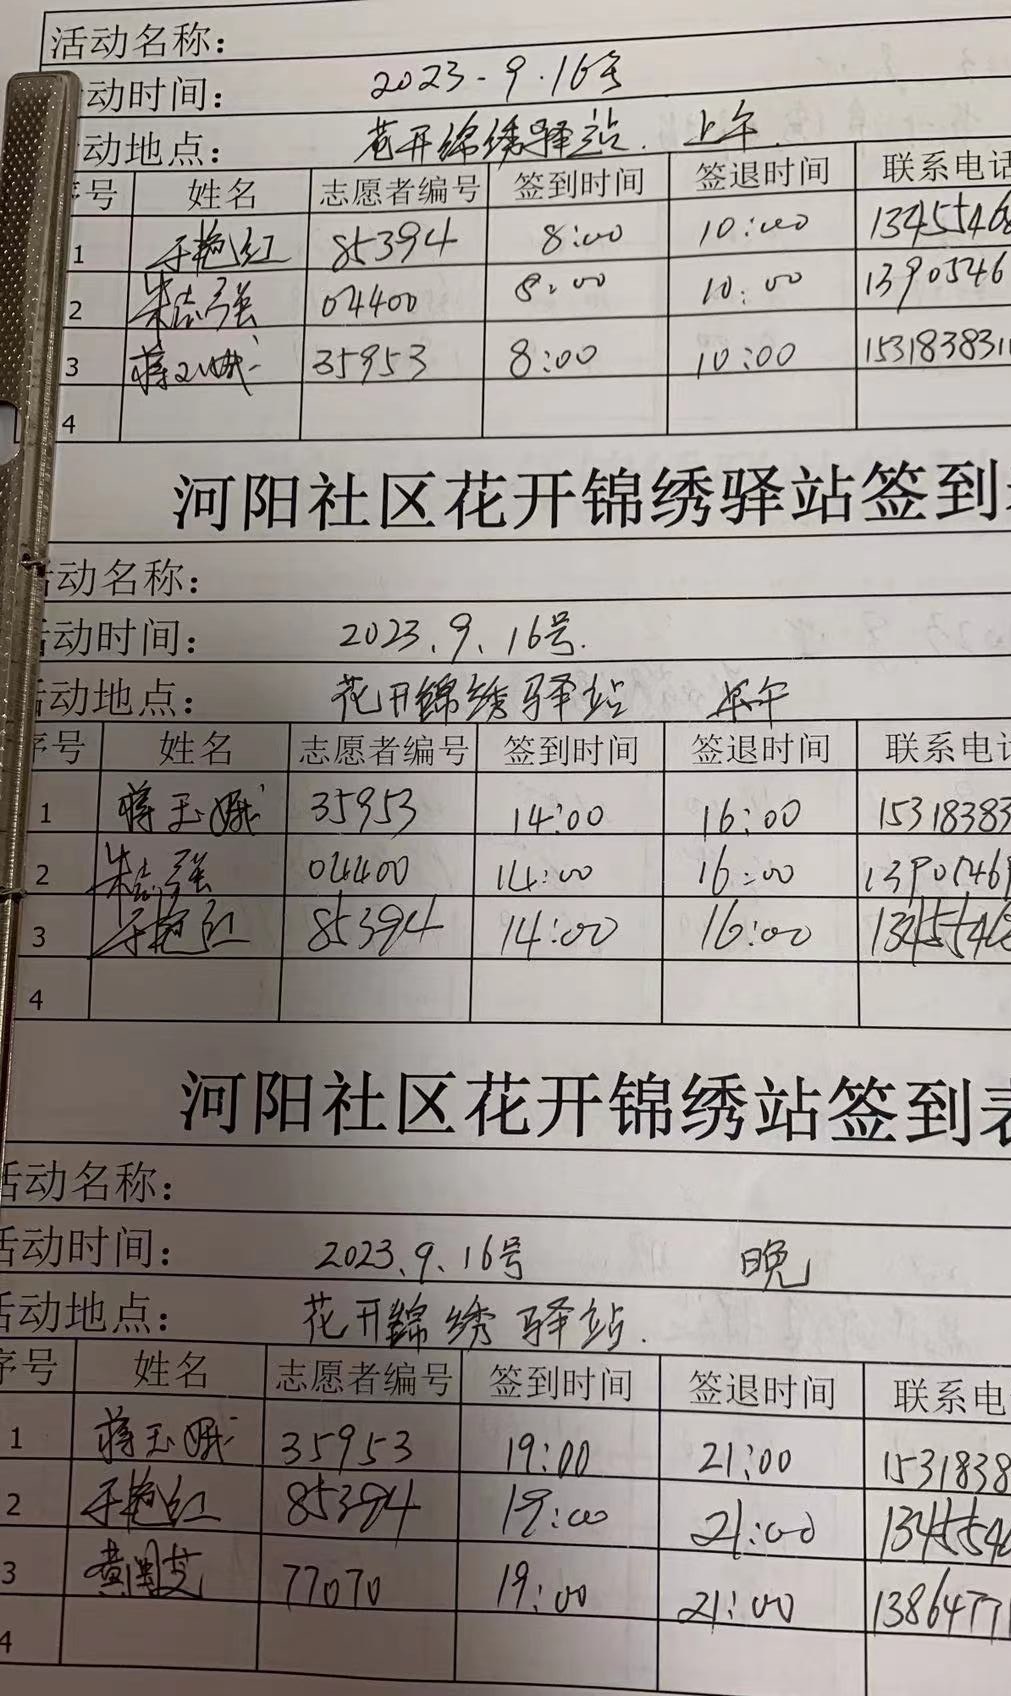 活动名称:
动时间: 2023-9.16号
动地点: 花开锦绣驿站. 上午.
号 姓名 志愿者编号 签到时间 签退时间 联系电话
1 于艳红 85394 8:00 10:00 1345546
2 朱志强 04400 8:00 10:00 1390546
3 蒋玉娥 35953 8:00 10:00 153183831
4
河阳社区花开锦绣驿站签到
活动名称:
活动时间: 2023.9.16号.
活动地点: 花开锦绣驿站 午
序号 姓名 志愿者编号 签到时间 签退时间 联系电话
1 蒋玉娥 35953 14:00 16:00 15318383
2 朱志强 04400 14:00 16:00 1390546
3 于艳红 85394 14:00 16:00 1345546
4
河阳社区花开锦绣站签到表
活动名称:
活动时间: 2023.9.16号 晚
活动地点: 花开锦绣驿站.
序号 姓名 志愿者编号 签到时间 签退时间 联系电
1 蒋玉娥 35953 19:00 21:00 1531838
2 于艳红 85394 19:00 21:00 134554
3 黄国芝 77070 19:00 21:00 1386477
4